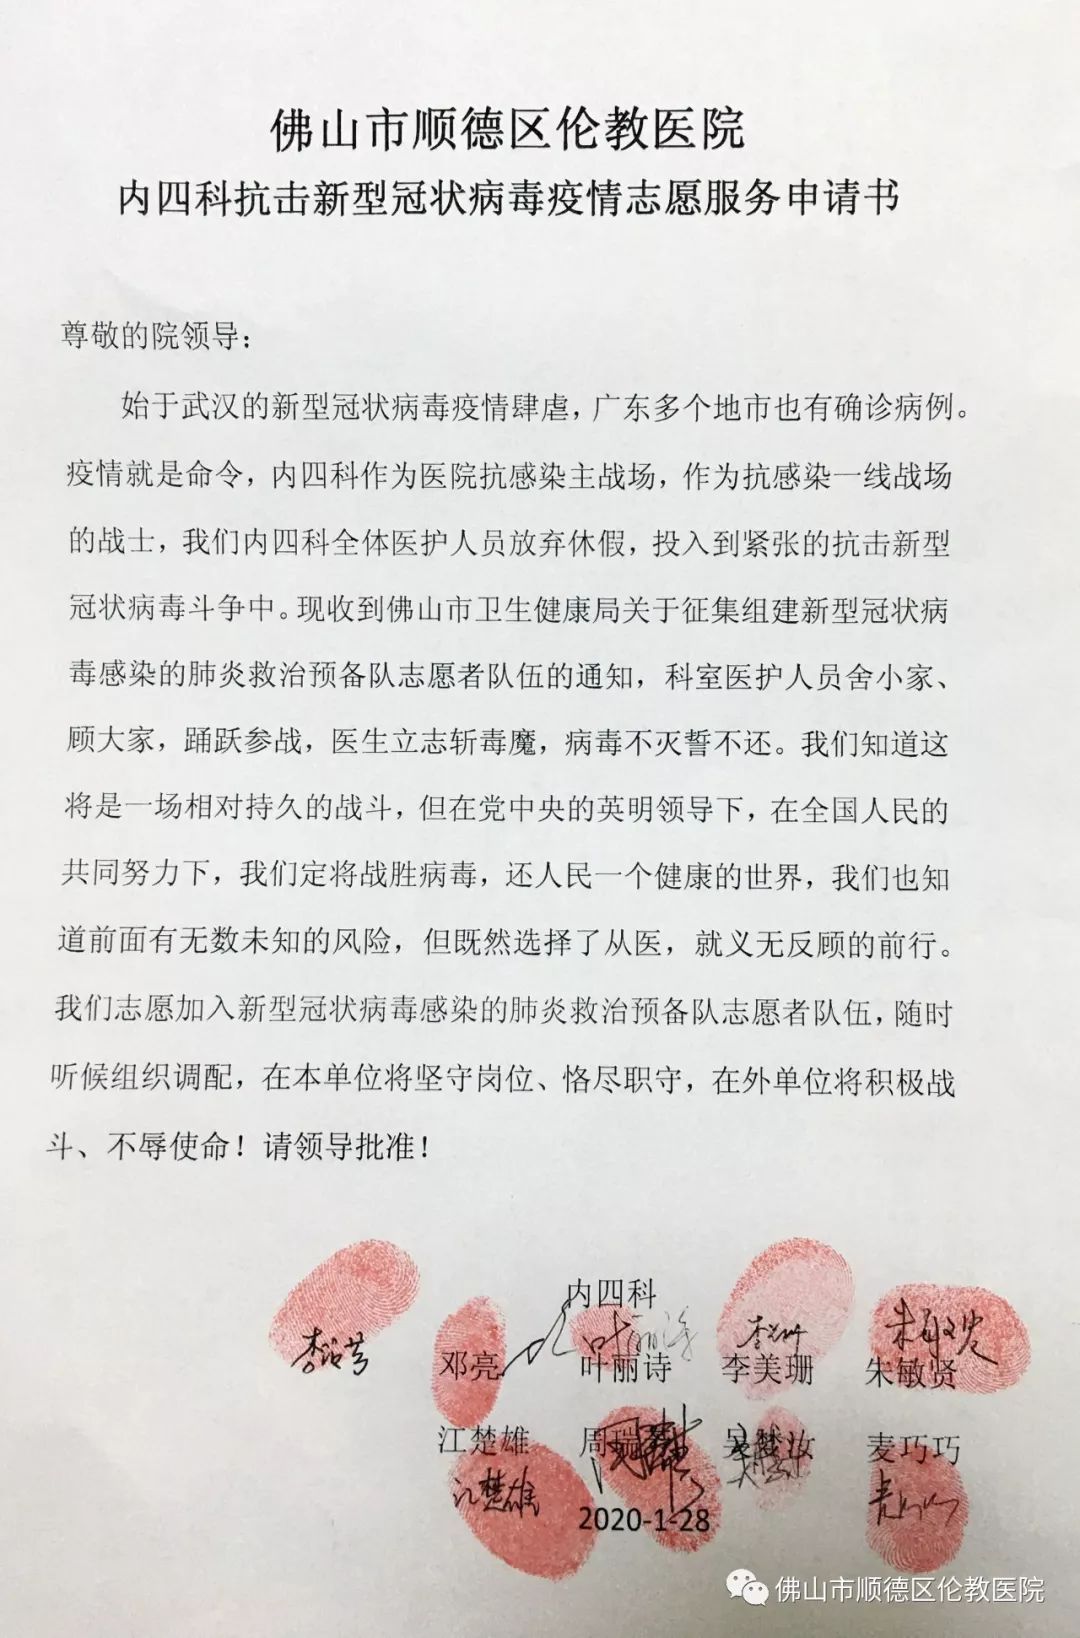 佛山市顺德区伦教医院
内四科抗击新型冠状病毒疫情志愿服务申请书
尊敬的院领导：
始于武汉的新型冠状病毒疫情肆虐，广东多个地市也有确诊病例。
疫情就是命令，内四科作为医院抗感染主战场，作为抗感染一线战场
的战士，我们内四科全体医护人员放弃休假，投入到紧张的抗击新型
冠状病毒斗争中。现收到佛山市卫生健康局关于征集组建新型冠状病
毒感染的肺炎救治预备队志愿者队伍的通知，科室医护人员舍小家、
顾大家，踊跃参战，医生立志斩毒魔，病毒不灭誓不还。我们知道这
将是一场相对持久的战斗，但在党中央的英明领导下，在全国人民的
共同努力下，我们定将战胜病毒，还人民一个健康的世界，我们也知
道前面有无数未知的风险，但既然选择了从医，就义无反顾的前行。
我们志愿加入新型冠状病毒感染的肺炎救治预备队志愿者队伍，随时
听候组织调配，在本单位将坚守岗位、恪尽职守，在外单位将积极战
斗、不辱使命！请领导批准！
内四科
叶丽诗 朱敏贤
邓亮 叶丽诗 李美珊 朱敏贤
江楚雄 周瑞 麦巧巧
江楚雄 麦巧巧
2020-1-28
佛山市顺德区伦教医院